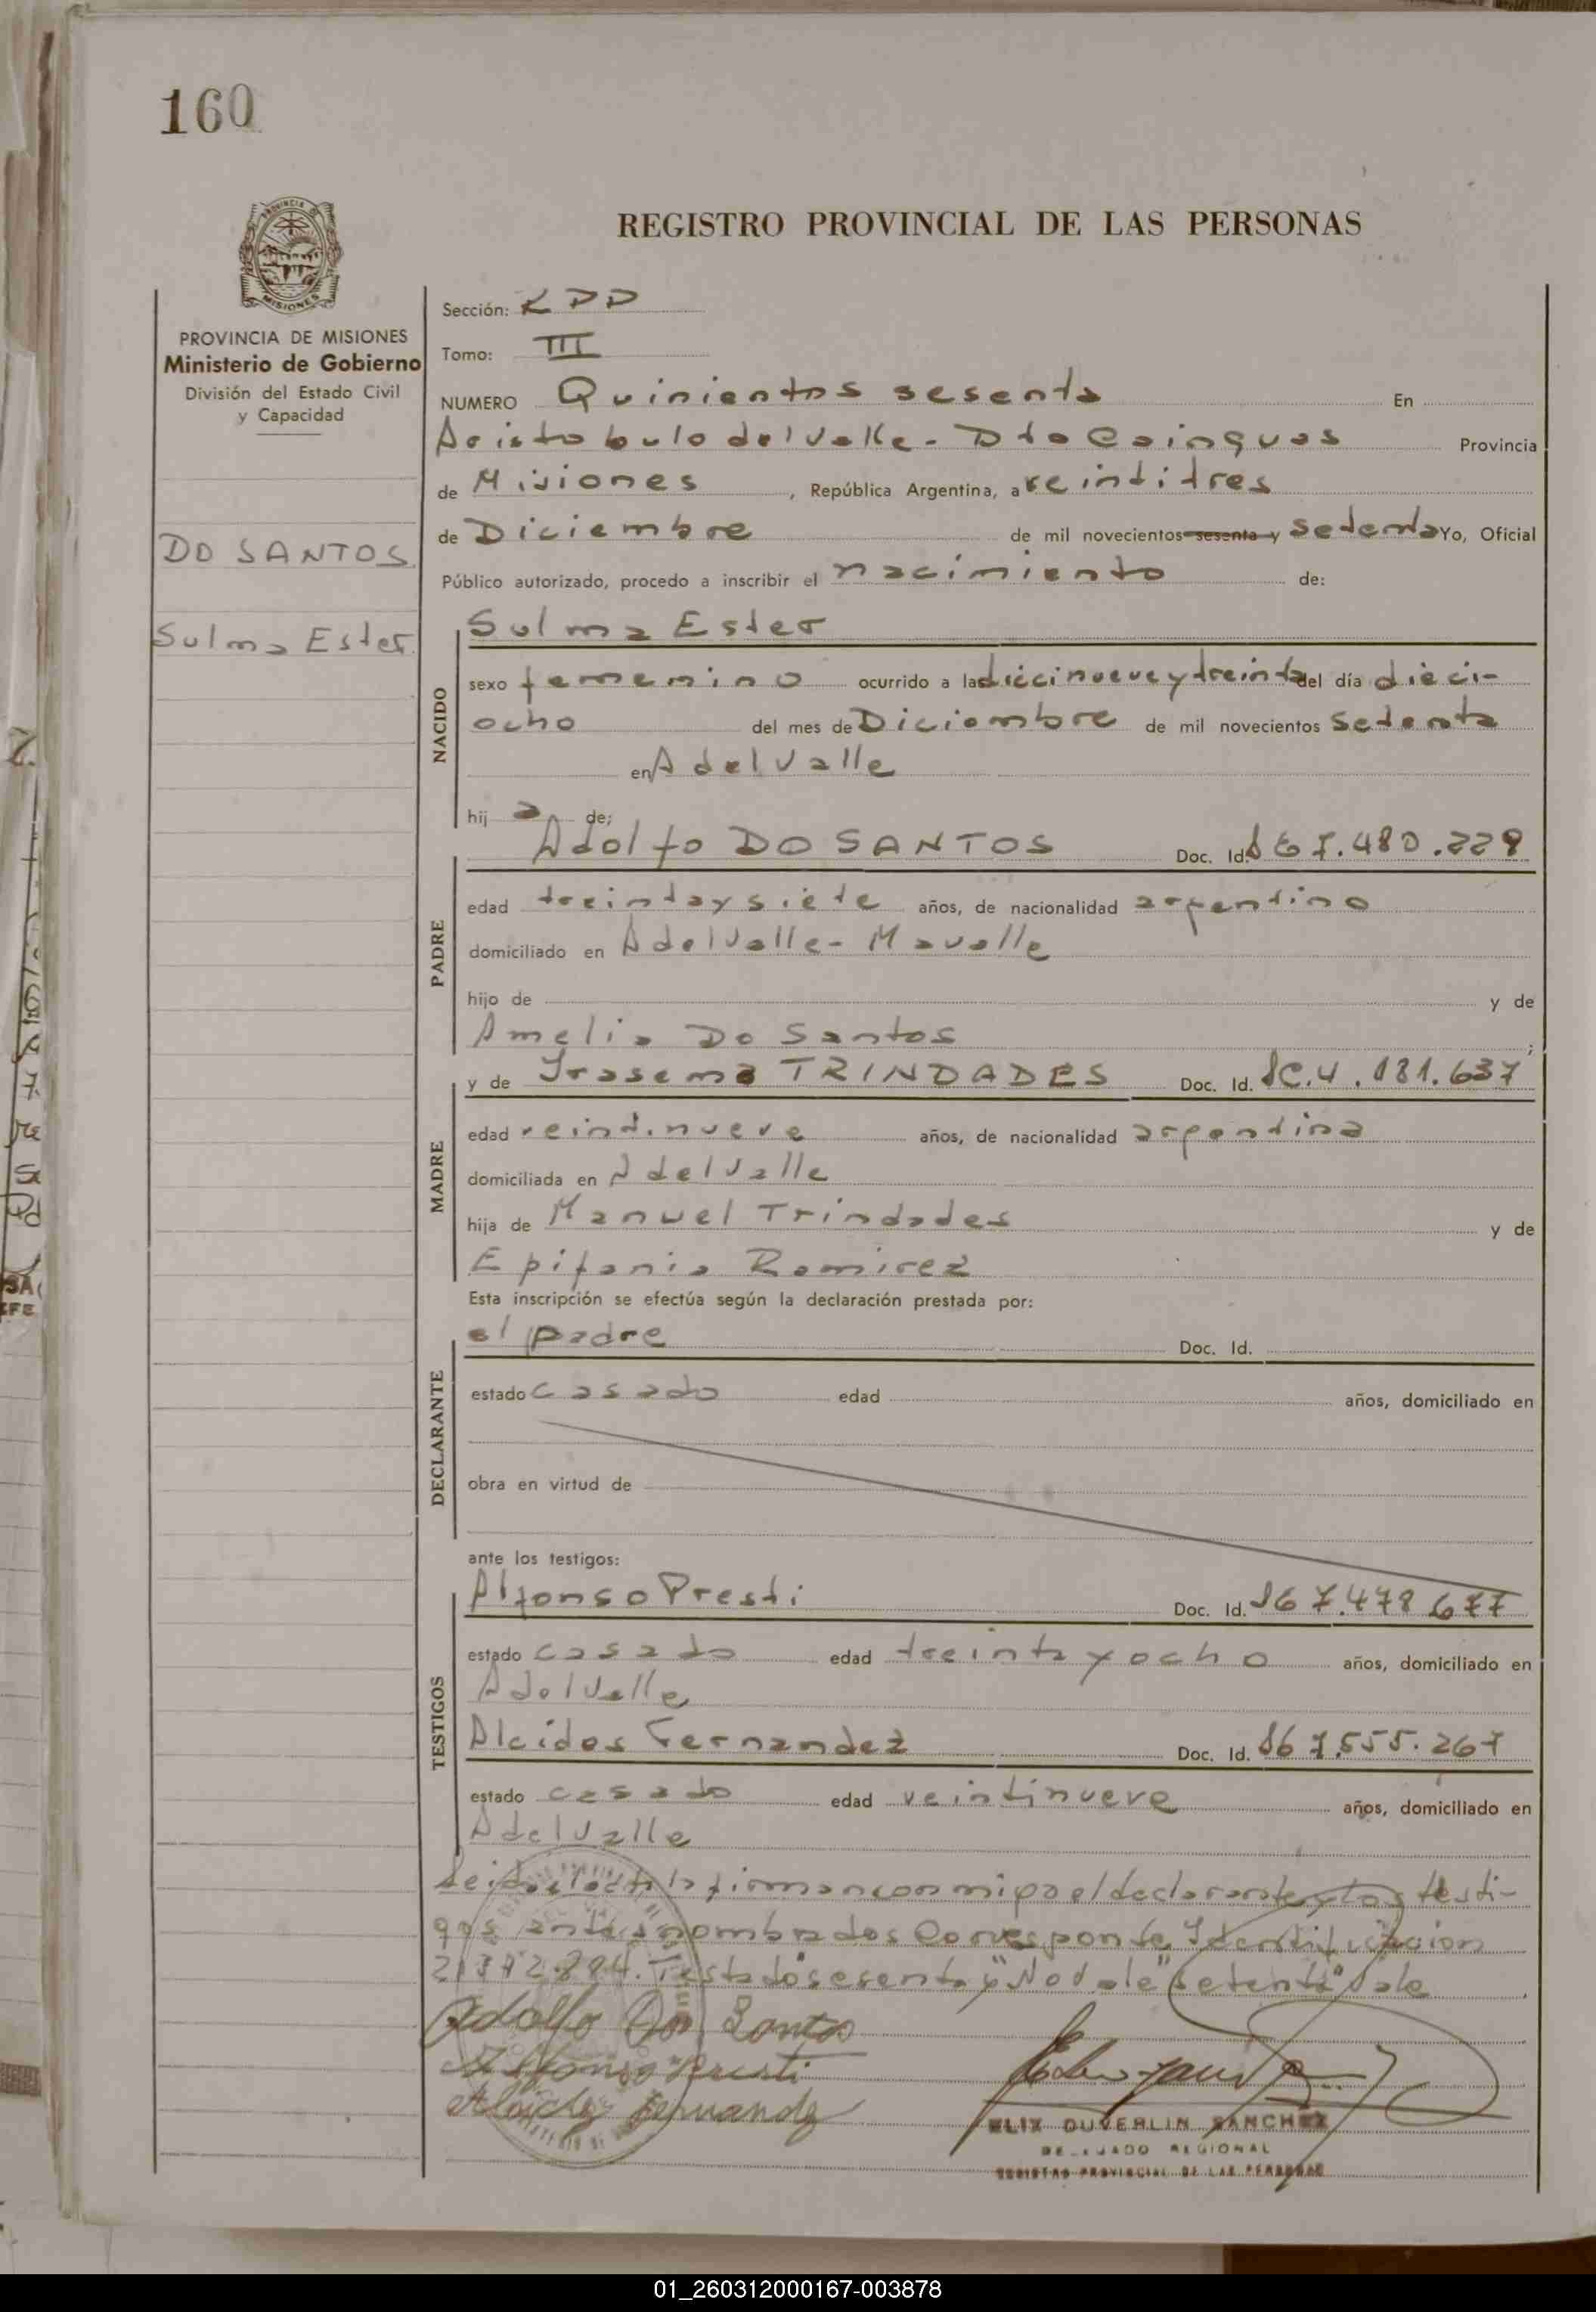 160
REGISTRO PROVINCIAL DE LAS PERSONAS
PROVINCIA DE MISIONES
MISIONES
PROVINCIA DE MISIONES
Ministerio de Gobierno
División del Estado Civil
y Capacidad
DO SANTOS
Sulma Ester
Sección:
Tomo: III
NUMERO Quinientos sesenta En
Aristobulo del Valle - Dto Cainguas Provincia
de Misiones, República Argentina, a veintitres
de Diciembre de mil novecientos sesenta y setenta Yo, Oficial
Público autorizado, procedo a inscribir el nacimiento de:
NACIDO
Sulma Ester
sexo femenino ocurrido a las diecinueve y treinta del día dieci-
ocho del mes de Diciembre de mil novecientos setenta
en A del Valle
hij a de;
PADRE
Adolfo DO SANTOS Doc. Id. 7.480.229
edad treinta y siete años, de nacionalidad argentino
domiciliado en A del Valle - Mavalle
hijo de y de
Amelia Do Santos ;
MADRE
y de Irasema TRINDADES Doc. Id. 4.181.637
edad veintinueve años, de nacionalidad argentina
domiciliada en A del Valle
hija de Manuel Trindades y de
Epifania Ramirez
Esta inscripción se efectúa según la declaración prestada por:
DECLARANTE
el padre Doc. Id.
estado casado edad años, domiciliado en
obra en virtud de
ante los testigos:
TESTIGOS
Alfonso Presti Doc. Id. 7.478.677
estado casado edad treinta y ocho años, domiciliado en
A del Valle
Alcides Fernandez Doc. Id. 7.555.267
estado casado edad veintinueve años, domiciliado en
A del Valle
Leida el acta la firman conmigo el declarante y los testi-
gos antes nombrados Corresponde Identificacion
Testado "sesenta y" No vale "setenta" Vale
Adolfo Do Santos
Alfonso Presti
Alcides Fernandez
ELIX DUVERLIN SANCHEZ
DELEGADO REGIONAL
REGISTRO PROVINCIAL DE LAS PERSONAS
01_260312000167-003878